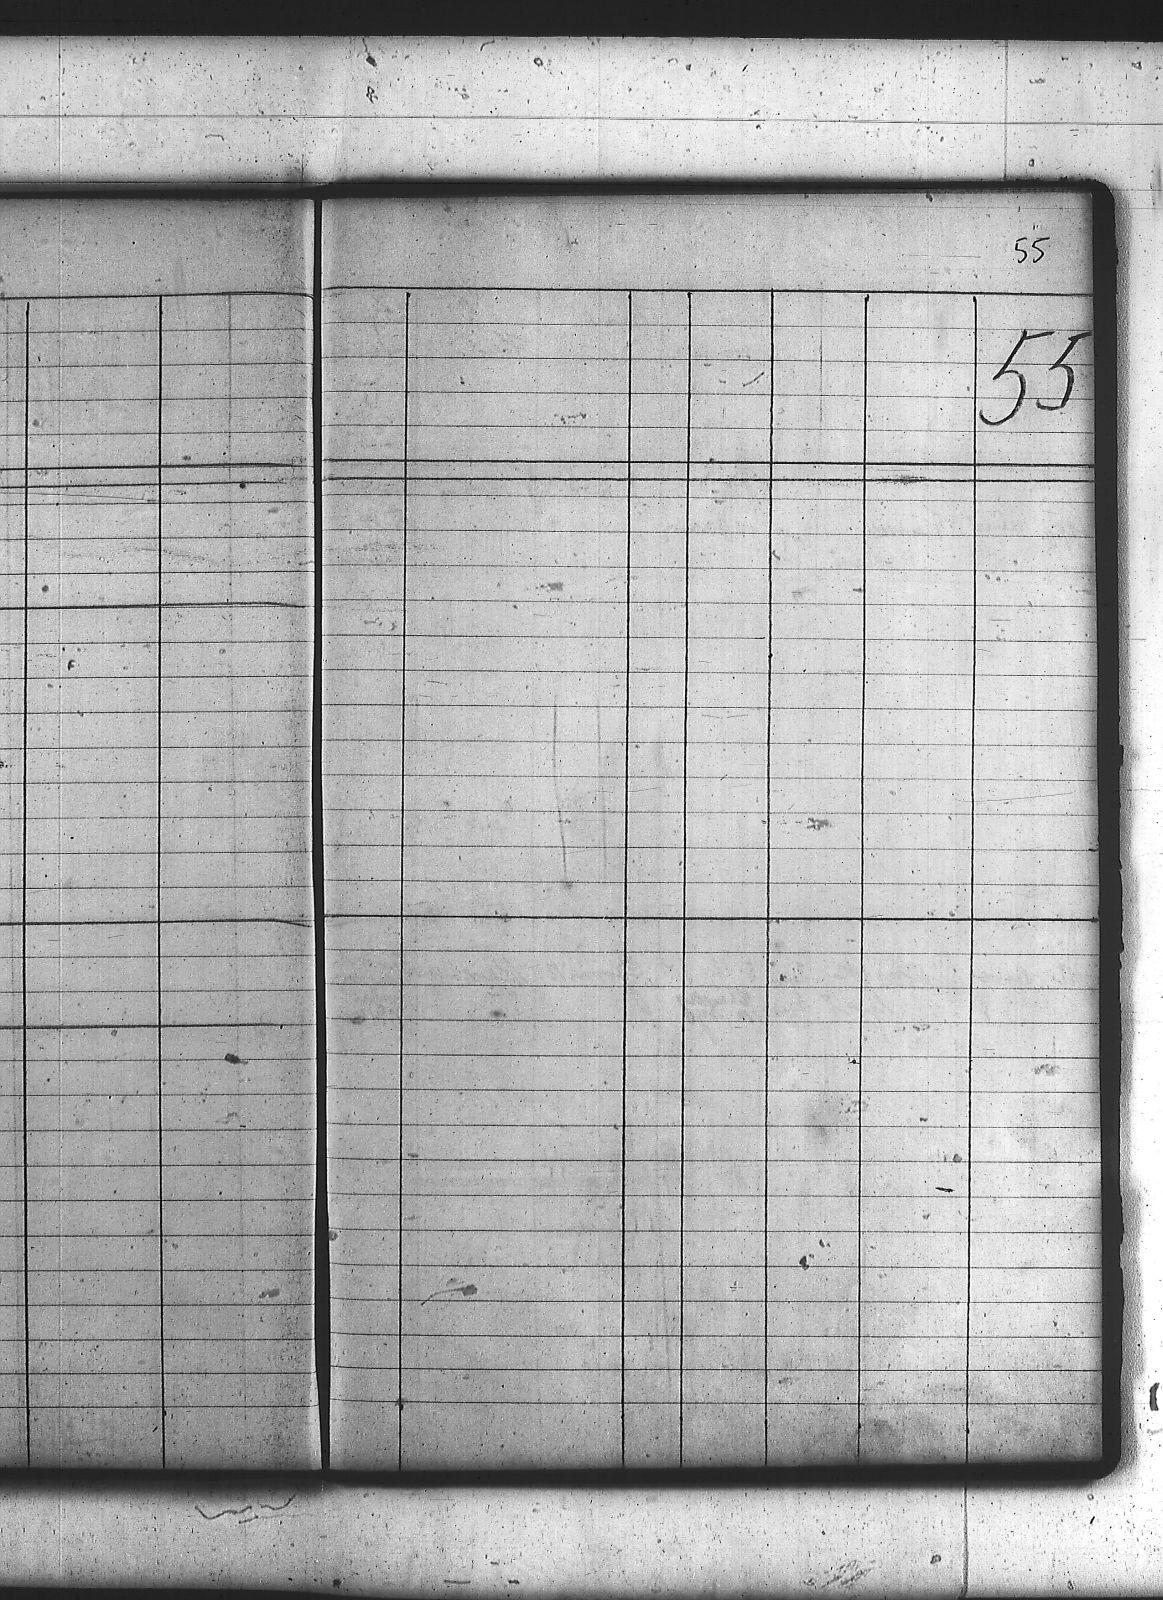 55
55